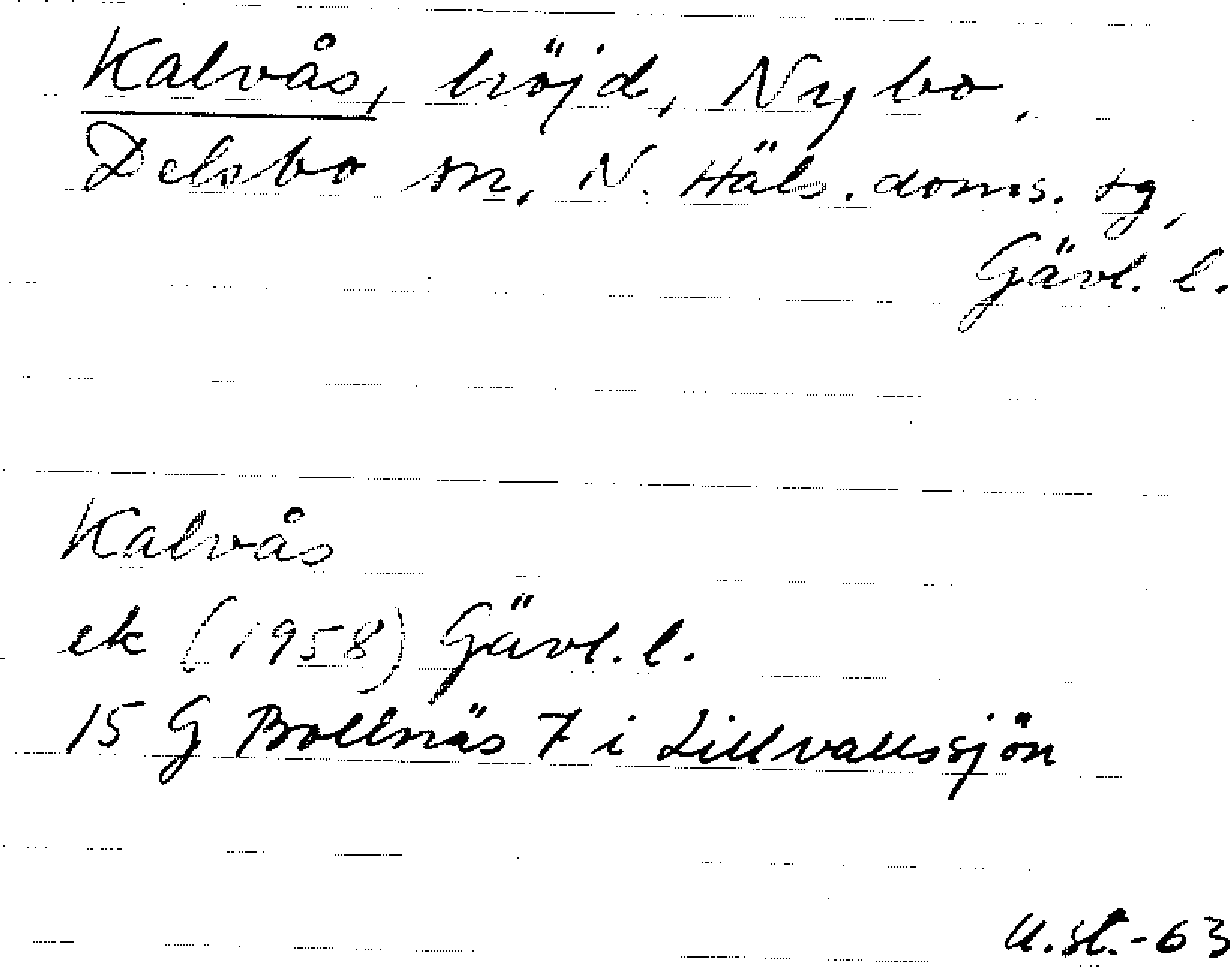 Kalvås, höjd, Nybo,
Delsbo sn, N. Häls. doms. sg,
Gävl. l.
Kalvås
ek (1958) Gävl. l.
15 G Bollnäs 7 i Lillvallssjön
U.St.-63